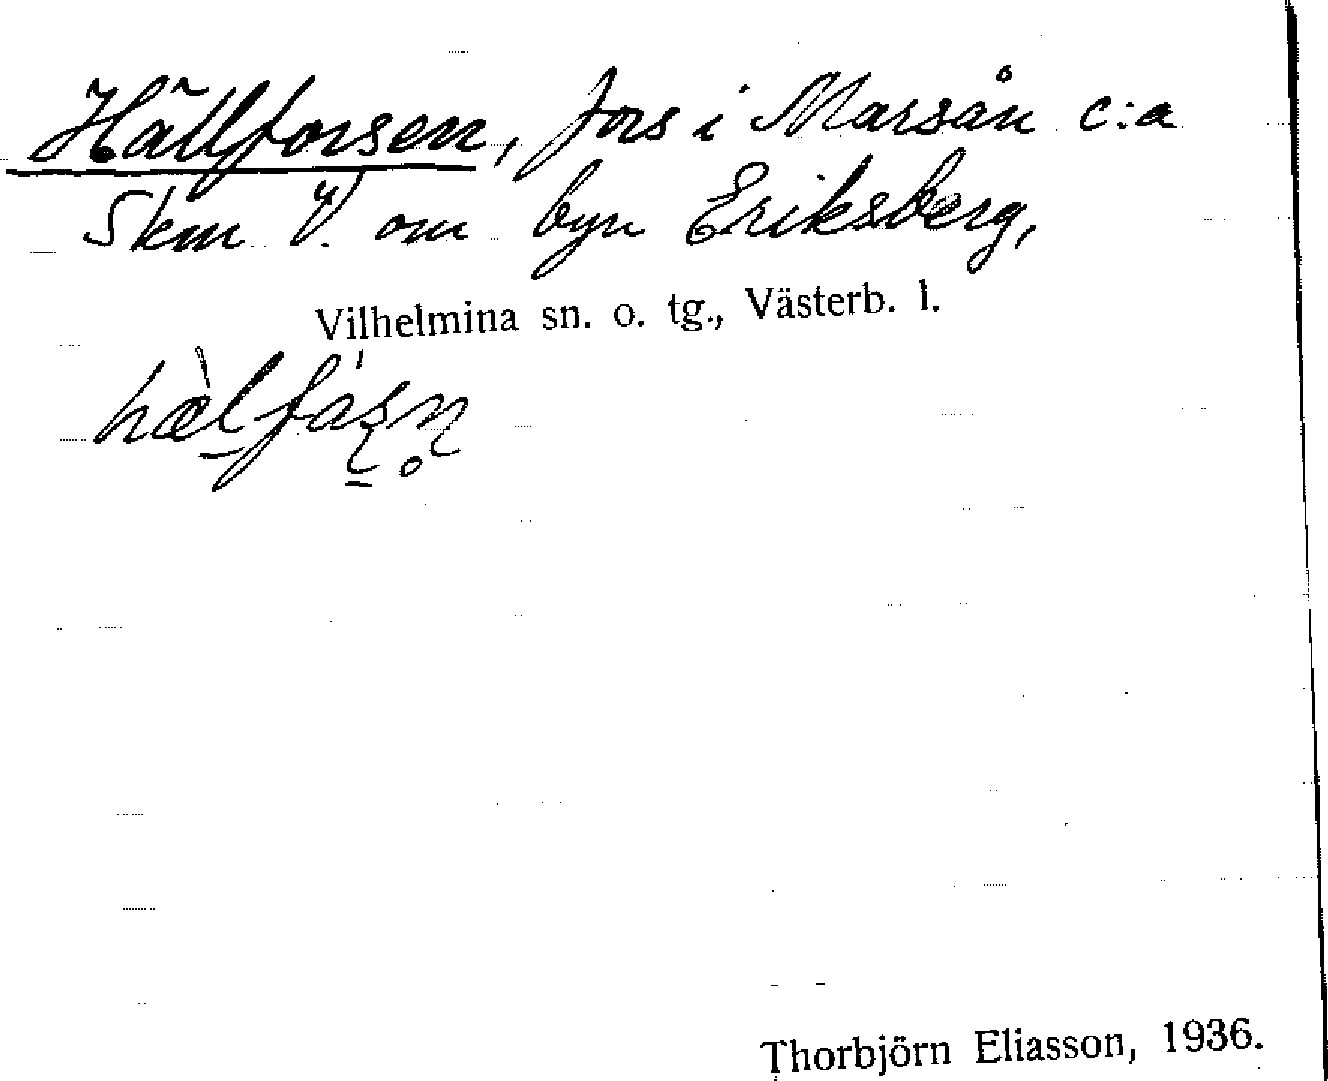 Hällforsen, fors i Marsån c:a
5km V. om byn Eriksberg,
Vilhelmina sn. o. tg., Västerb. l.
Thorbjörn Eliasson, 1936.